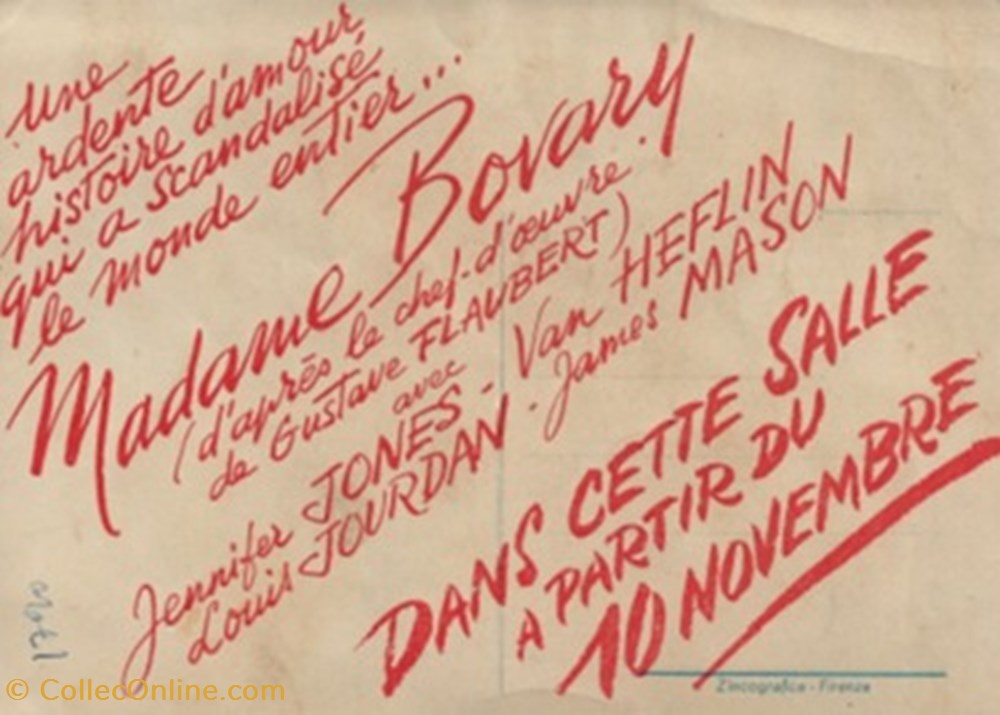 Une
ardente
histoire d'amour
qui a scandalisé
le monde entier...
Madame Bovary
(d'après le chef-d'œuvre
de Gustave FLAUBERT)
avec
Jennifer JONES - Van HEFLIN
Louis JOURDAN - James MASON
DANS CETTE SALLE
A PARTIR DU
10 NOVEMBRE
Zincografica - Firenze
© CollecOnline.com